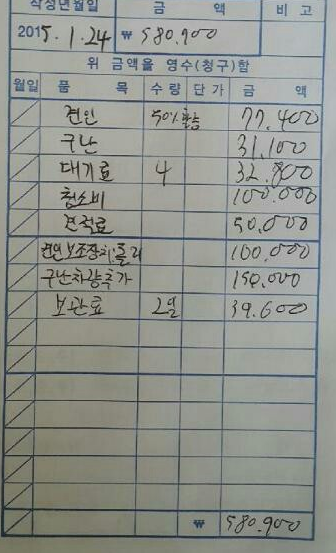 작성년월일 금 액 비 고
2015.1.24 ₩ 580.900
위 금액을 영수(청구)함
월일 품 목 수량 단가 금 액
견인 50%할증 77,400
구난 31,100
대기료 4 32,800
청소비 100.000
견적료 50,000
견인보조장치:돌리 100,000
구난차량추가 150,000
보관료 2일 39.600
₩ 580.900